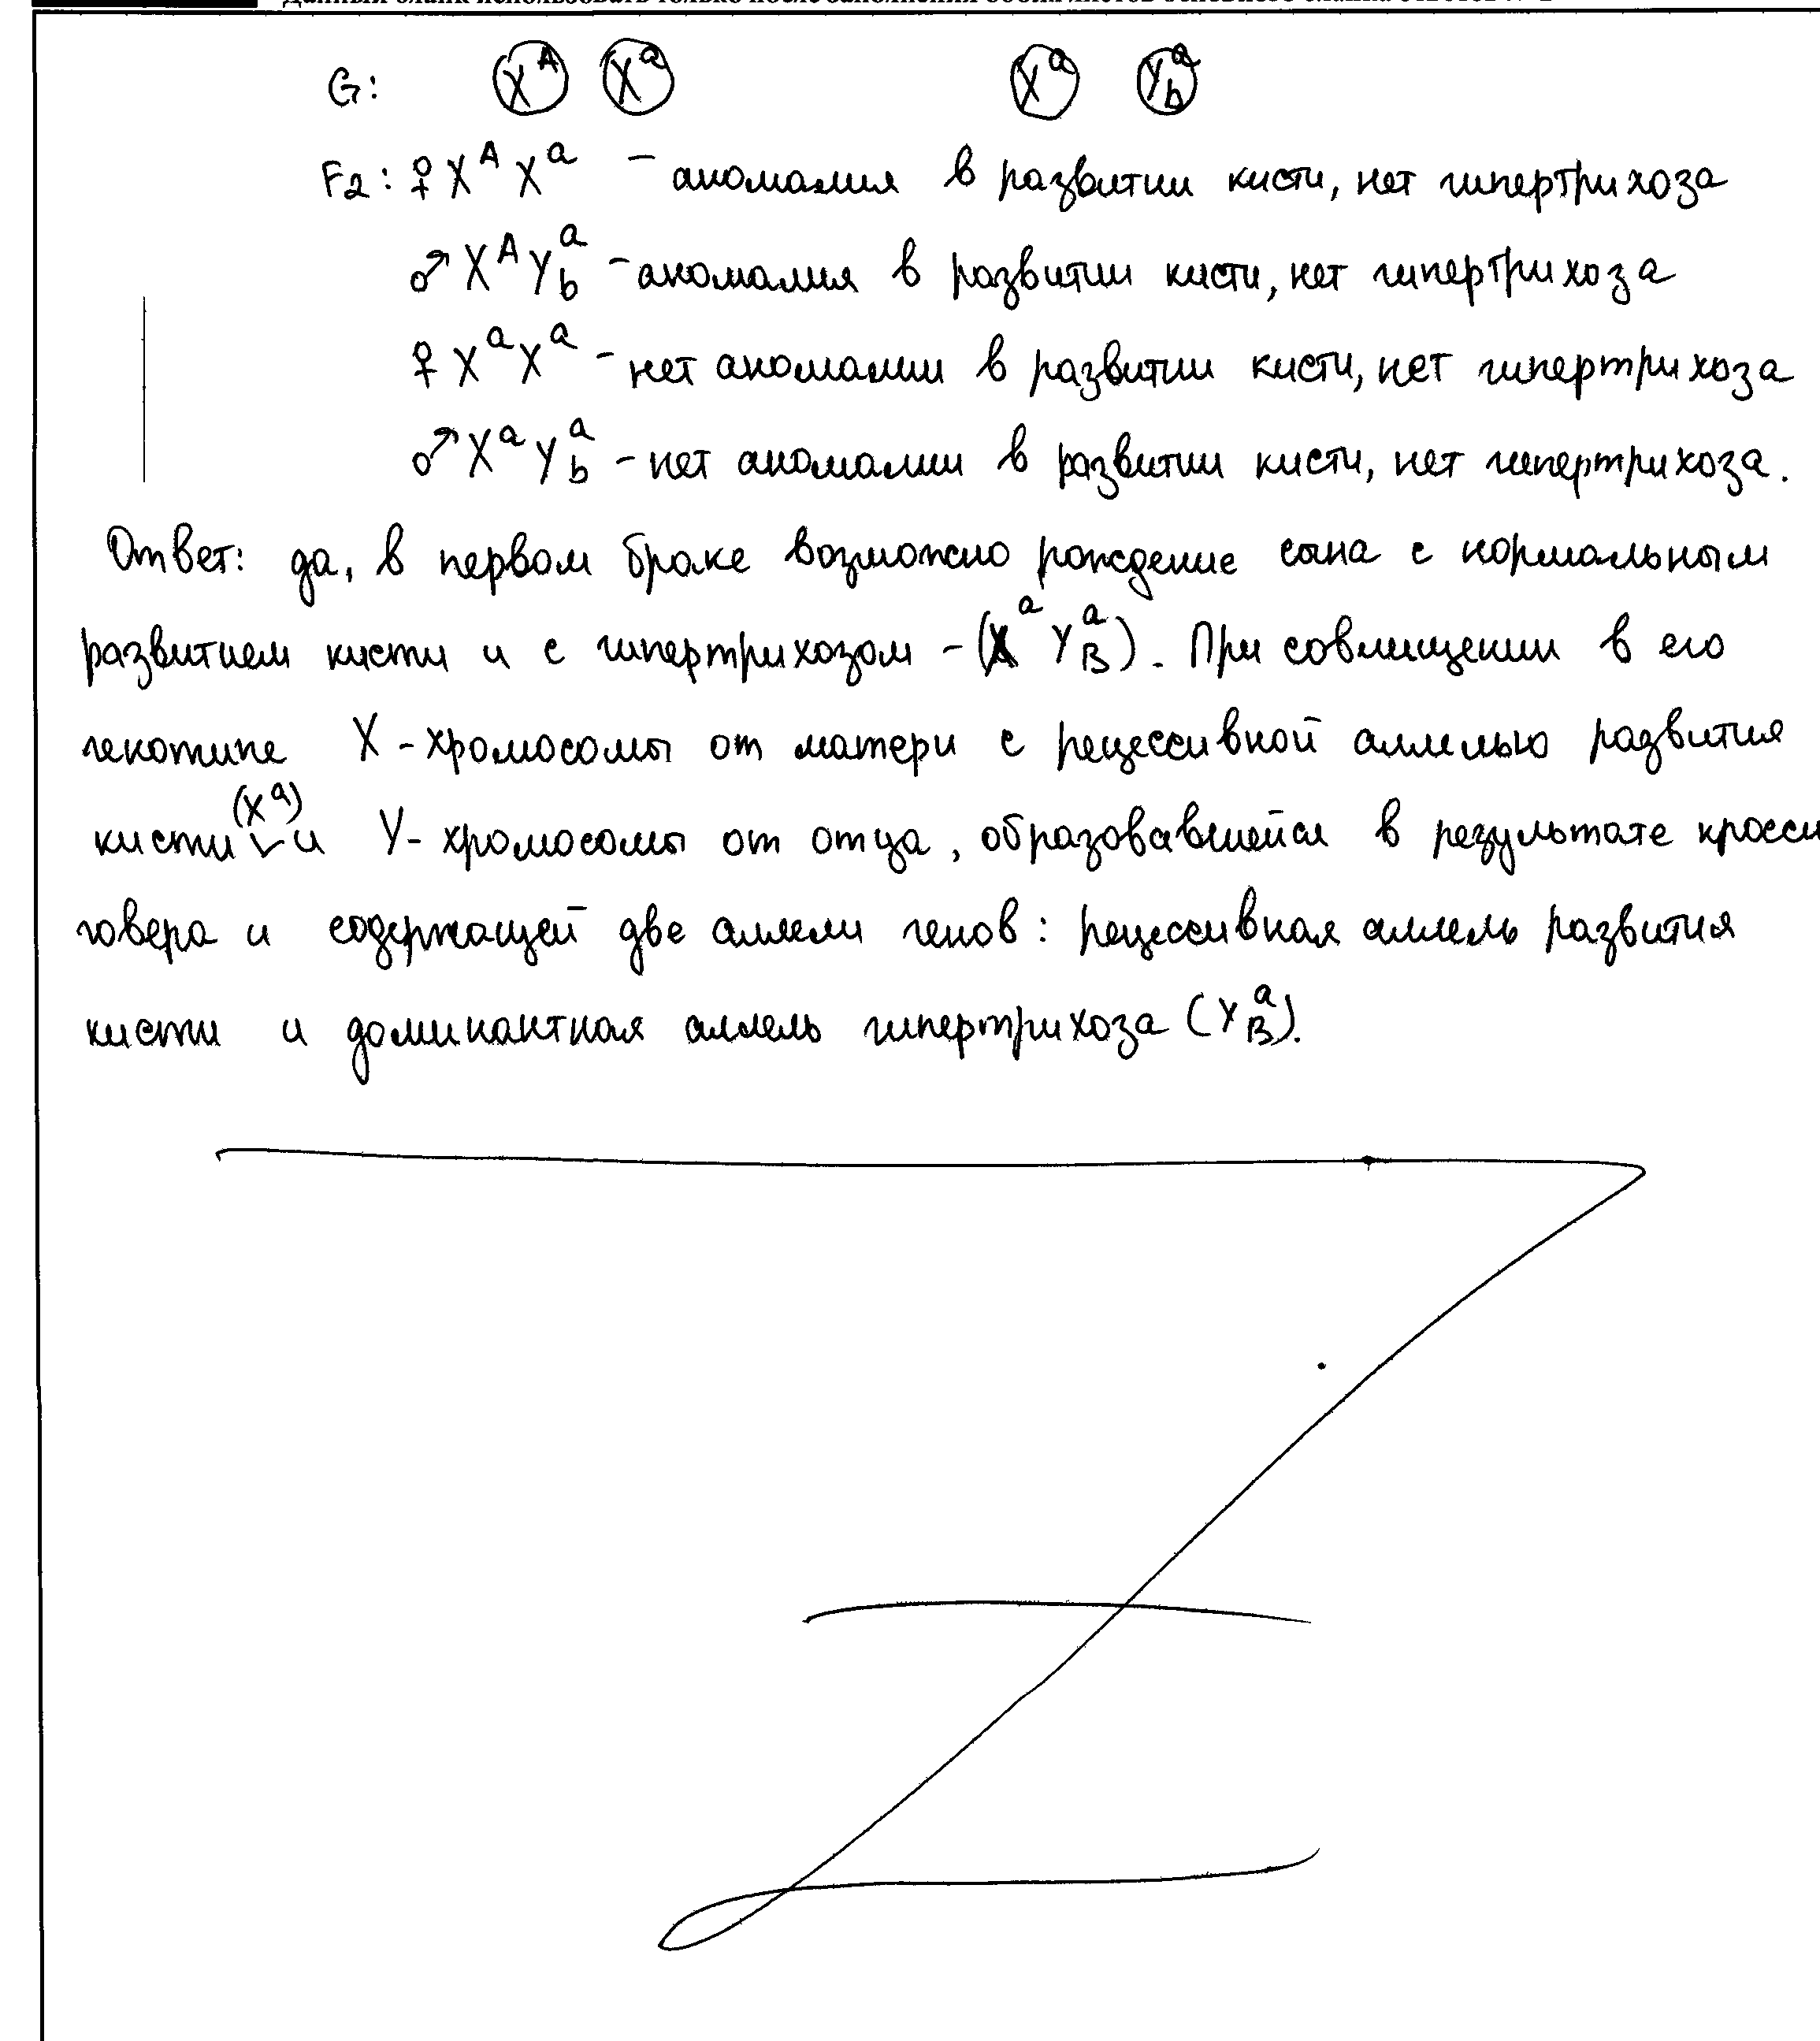 G: X^A X^a X^a Y_b^a
F2: ♀ X^A X^a – аномалия в развитии кисти, нет гипертрихоза
♂ X^A Y_b^a – аномалия в развитии кисти, нет гипертрихоза
♀ X^a X^a – нет аномалии в развитии кисти, нет гипертрихоза
♂ X^a Y_b^a – нет аномалии в развитии кисти, нет гипертрихоза.
Ответ: да, в первом браке возможно рождение сына с нормальным
развитием кисти и с гипертрихозом – (X^a Y_B^a). При совмещении в его
генотипе X-хромосомы от матери с рецессивной аллелью развития
кисти (X^a) и Y-хромосомы от отца, образовавшейся в результате кросси
говера и содержащей две аллели генов: рецессивная аллель развития
кисти и доминантная аллель гипертрихоза (Y_B^a).